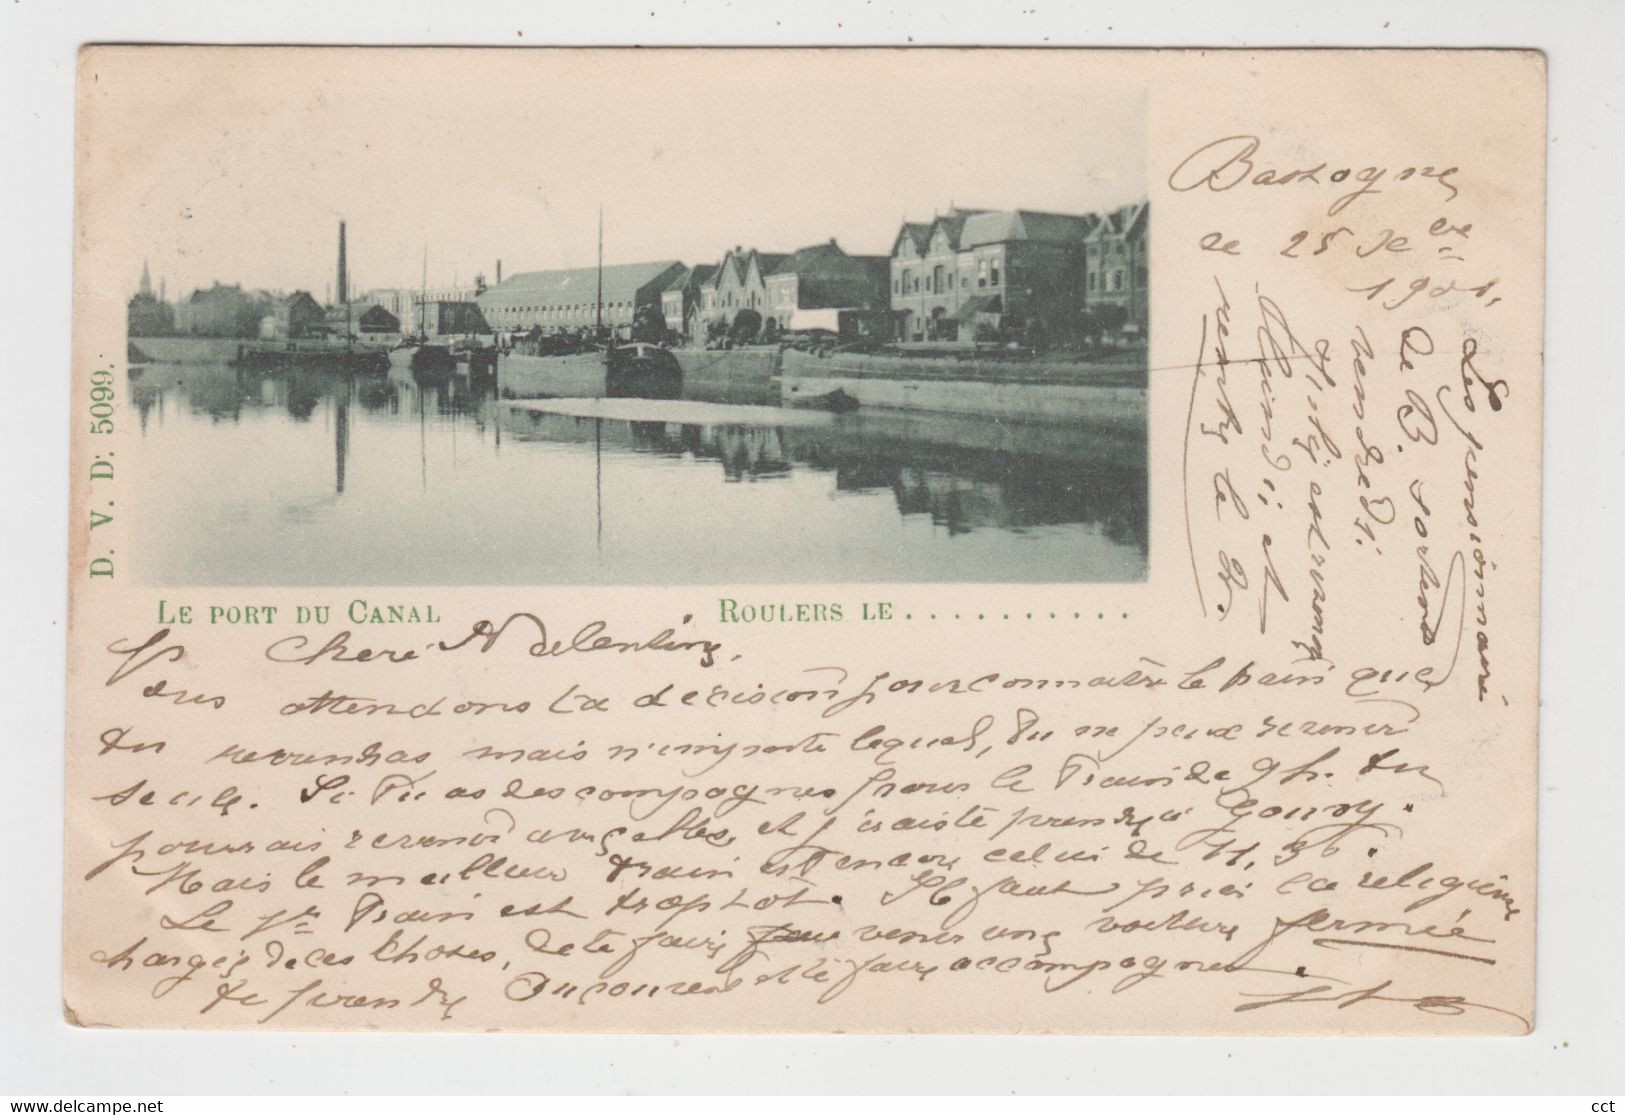 D. V. D: 5099.
LE PORT DU CANAL
ROULERS LE . . . . . . . . . . .
Bastogne
le 25 Xbre
1901.
Les pensionnaires
de B. sortent
vendredi.
lundi et
rentrer le 2.
Chère Adelentine,
Nous attendons ta décision pour connaître le train que
tu reviendras mais n'importe lequel, tu ne peux revenir
seule. Si tu as des compagnes pour le Train de 9 h. tu
pourrais revenir avec elles, et j'irais te prendre à Gouvy.
Mais le meilleur train est encore celui de 11,50.
Le 1er Train est trop tot. Il faut prier la religieuse
chargée de ces choses, de te faire venir une voiture fermée
te prendre ou en te faire accompagner.
www.delcampe.net
cct